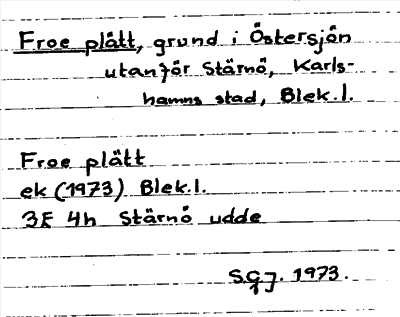 Froe plått, grund i Östersjön
utanför Stärnö, Karls-
hamns stad, Blek.l.
Froe plått
ek (1973) Blek.l.
3E 4h Stärnö udde
S.G.J. 1973.